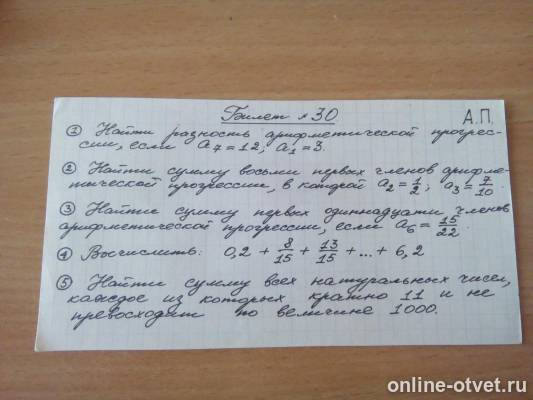 Билет №30
А.П.
① Найти разность арифметической прогрес-
сии, если a₇=12; a₁=3.
② Найти сумму восьми первых членов арифме-
тической прогрессии, в которой a₂=1/2; a₃=7/10.
③ Найти сумму первых одиннадцати членов
арифметической прогрессии, если a₆=15/22.
④ Вычислить: 0,2 + 8/15 + 13/15 + ... + 6,2
⑤ Найти сумму всех натуральных чисел,
каждое из которых кратно 11 и не
превосходит по величине 1000.
online-otvet.ru